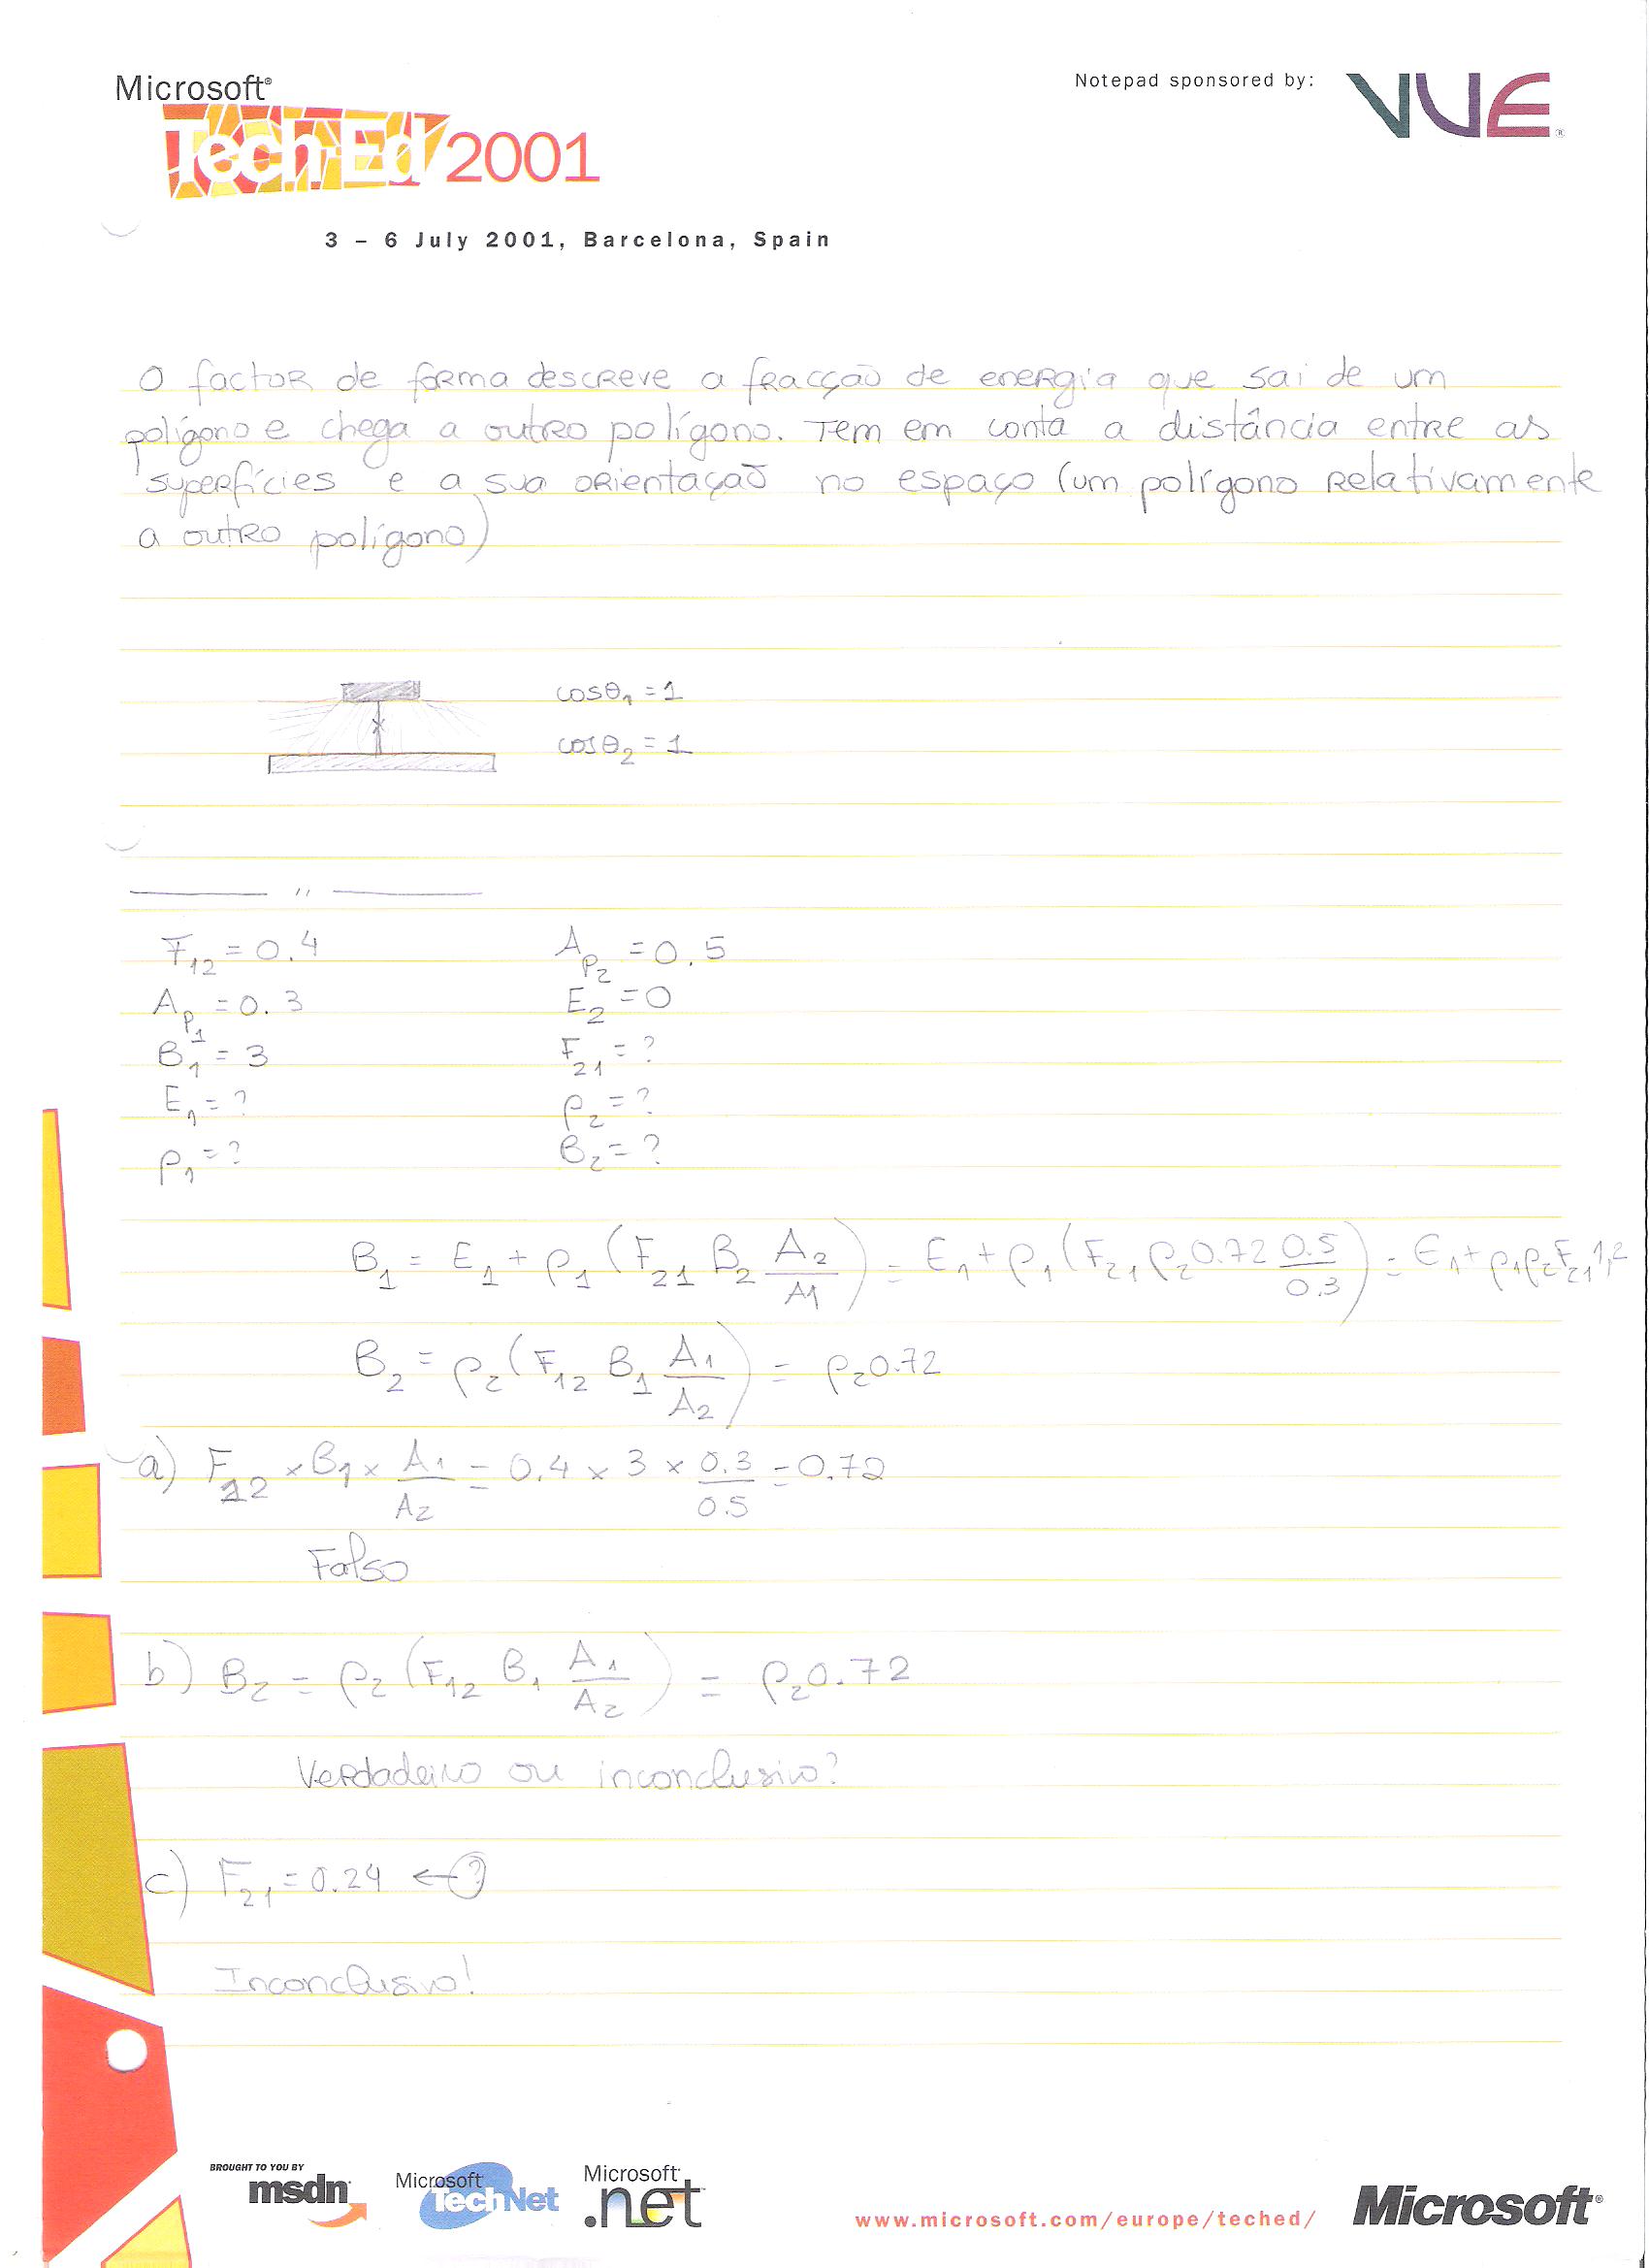 Microsoft®
Tech·Ed 2001
Notepad sponsored by: VUE®
3 – 6 July 2001, Barcelona, Spain
O factor de forma descreve a fracção de energia que sai de um
polígono e chega a outro polígono. Tem em conta a distância entre as
superfícies e a sua orientação no espaço (um polígono relativamente
a outro polígono)
cosθ₁ = 1
cosθ₂ = 1
——— " ———
F₁₂ = 0.4
A_P₁ = 0.3
B₁ = 3
E₁ = ?
ρ₁ = ?
A_P₂ = 0.5
E₂ = 0
F₂₁ = ?
ρ₂ = ?
B₂ = ?
B₁ = E₁ + ρ₁ (F₂₁ B₂ A₂/A1) = E₁ + ρ₁ (F₂₁ ρ₂ 0.72 0.5/0.3) = E₁ + ρ₁ρ₂F₂₁ 1,2
B₂ = ρ₂ (F₁₂ B₁ A₁/A₂) = ρ₂ 0.72
a) F₁₂ × B₁ × A₁/A₂ = 0.4 × 3 × 0.3/0.5 = 0.72
Falso
b) B₂ = ρ₂ (F₁₂ B₁ A₁/A₂) = ρ₂ 0.72
Verdadeiro ou inconclusivo?
c) F₂₁ = 0.24 ← ?
Inconclusivo!
BROUGHT TO YOU BY
msdn
Microsoft TechNet
Microsoft .net
www.microsoft.com/europe/teched/
Microsoft®